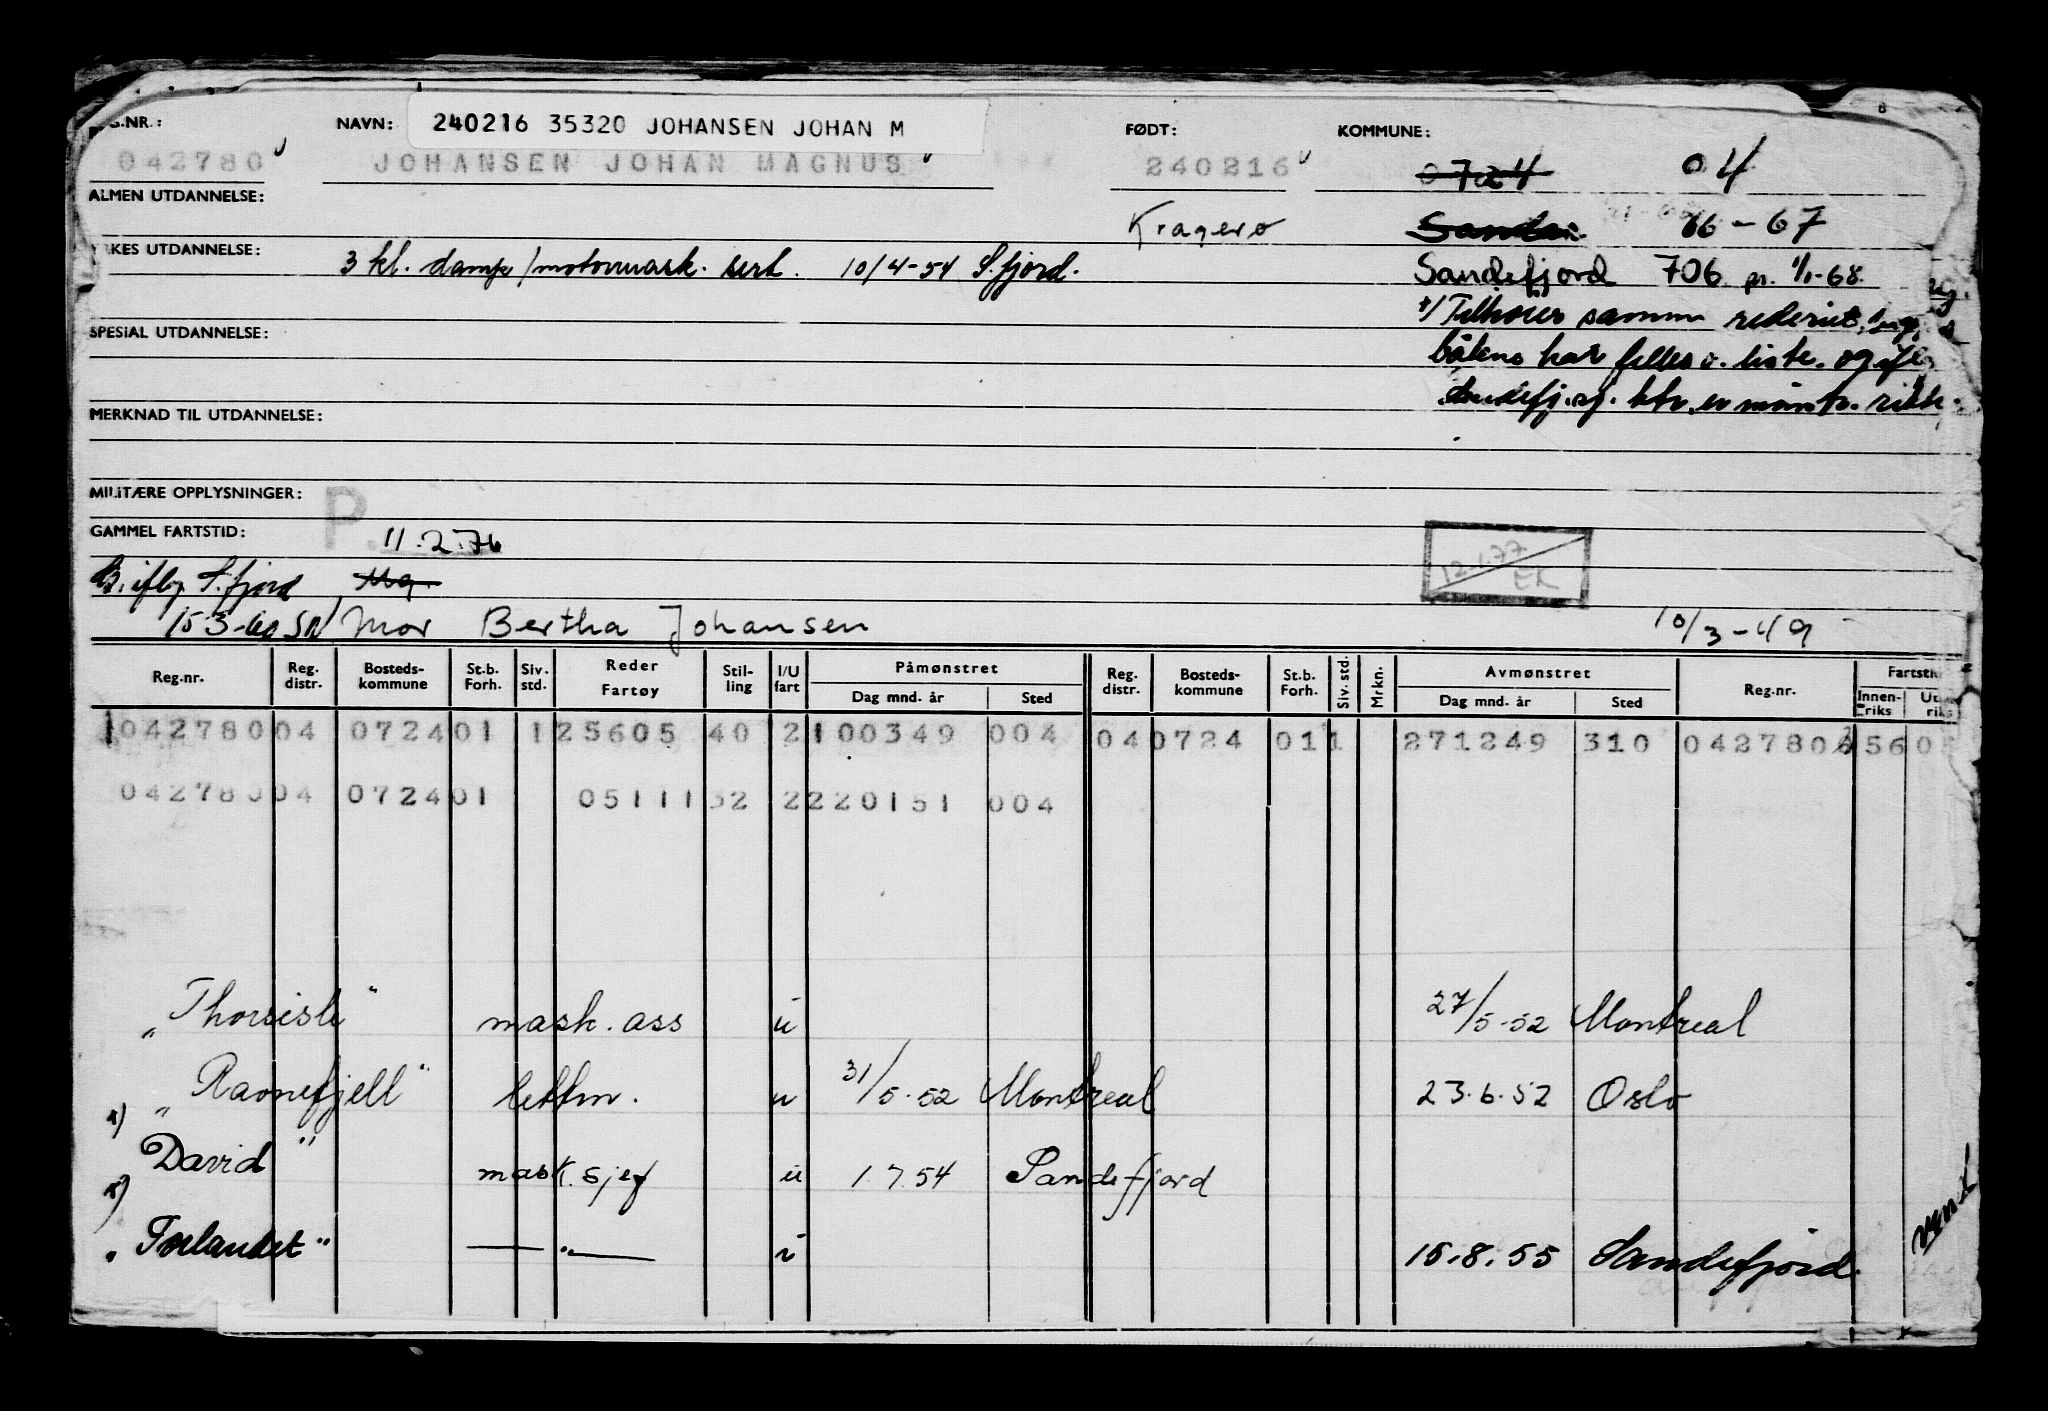 S.NR.: NAVN: 240216 35320 JOHANSEN JOHAN M FØDT: KOMMUNE:
042780 JOHANSEN JOHAN MAGNUS 240216 0724 04
ALMEN UTDANNELSE: Kragerø Sandar 66-67
RKES UTDANNELSE: 3 kl. damp/motormask. sert. 10/4-54 S.fjord. Sandefjord 706 pr. 1/1-68
+/ Tilhører samme rederiet,
SPESIAL UTDANNELSE:
båtene har felles liste. og
MERKNAD TIL UTDANNELSE:
MILITÆRE OPPLYSNINGER: P.
GAMMEL FARTSTID: 11.2.76
12.1.77 EK
S.fjord
15 3-60 Mor Bertha Johansen 10/3-49
Reg.nr. Reg. distr. Bosteds-kommune St.b. Forh. Siv. std. Reder Fartøy Stil-ling I/U fart Påmønstret Dag mnd. år Sted Reg. distr. Bosteds-kommune St.b. Forh. Siv. std. Mrkn. Avmønstret Dag mnd. år Sted Reg.nr. Fartsti Innen-riks Ut riks
042780 04 0724 01 1 25605 40 2 100349 004 04 0724 01 1 271249 310 042780 56 0
042780 04 0724 01 05111 32 2 220151 004
"Thorsisle" mask. ass u 27/5-52 Montreal
"Ravnefjell" lettm. u 31/5-52 Montreal 23.6.52 Oslo
x) David" mask.sjef u 1.7.54 Sandefjord
x) "Forlandet" — " — u 15.8.55 Sandefjord.